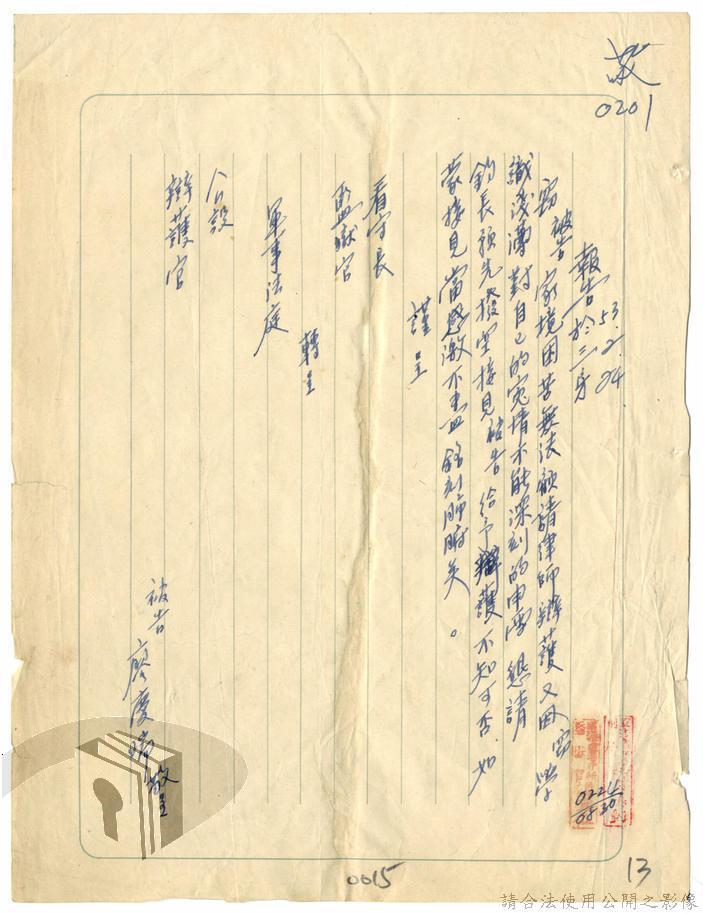 敬
0201
53.2.24
報告於三身
竊被告家境困苦無法顧請律師辯護又因竊學
識淺薄對自己的冤情不能深刻的申雪懇請
鈞長預先撥空接見被告給予辯護不知可否、如
蒙接見當感激不盡銘刻肺腑矣。
謹呈
看守長
監獄官
轉呈
軍事法庭
公設
辯護官
被告 廖慶瑞 敬呈
0224
0830
0015
13
請合法使用公開之影像